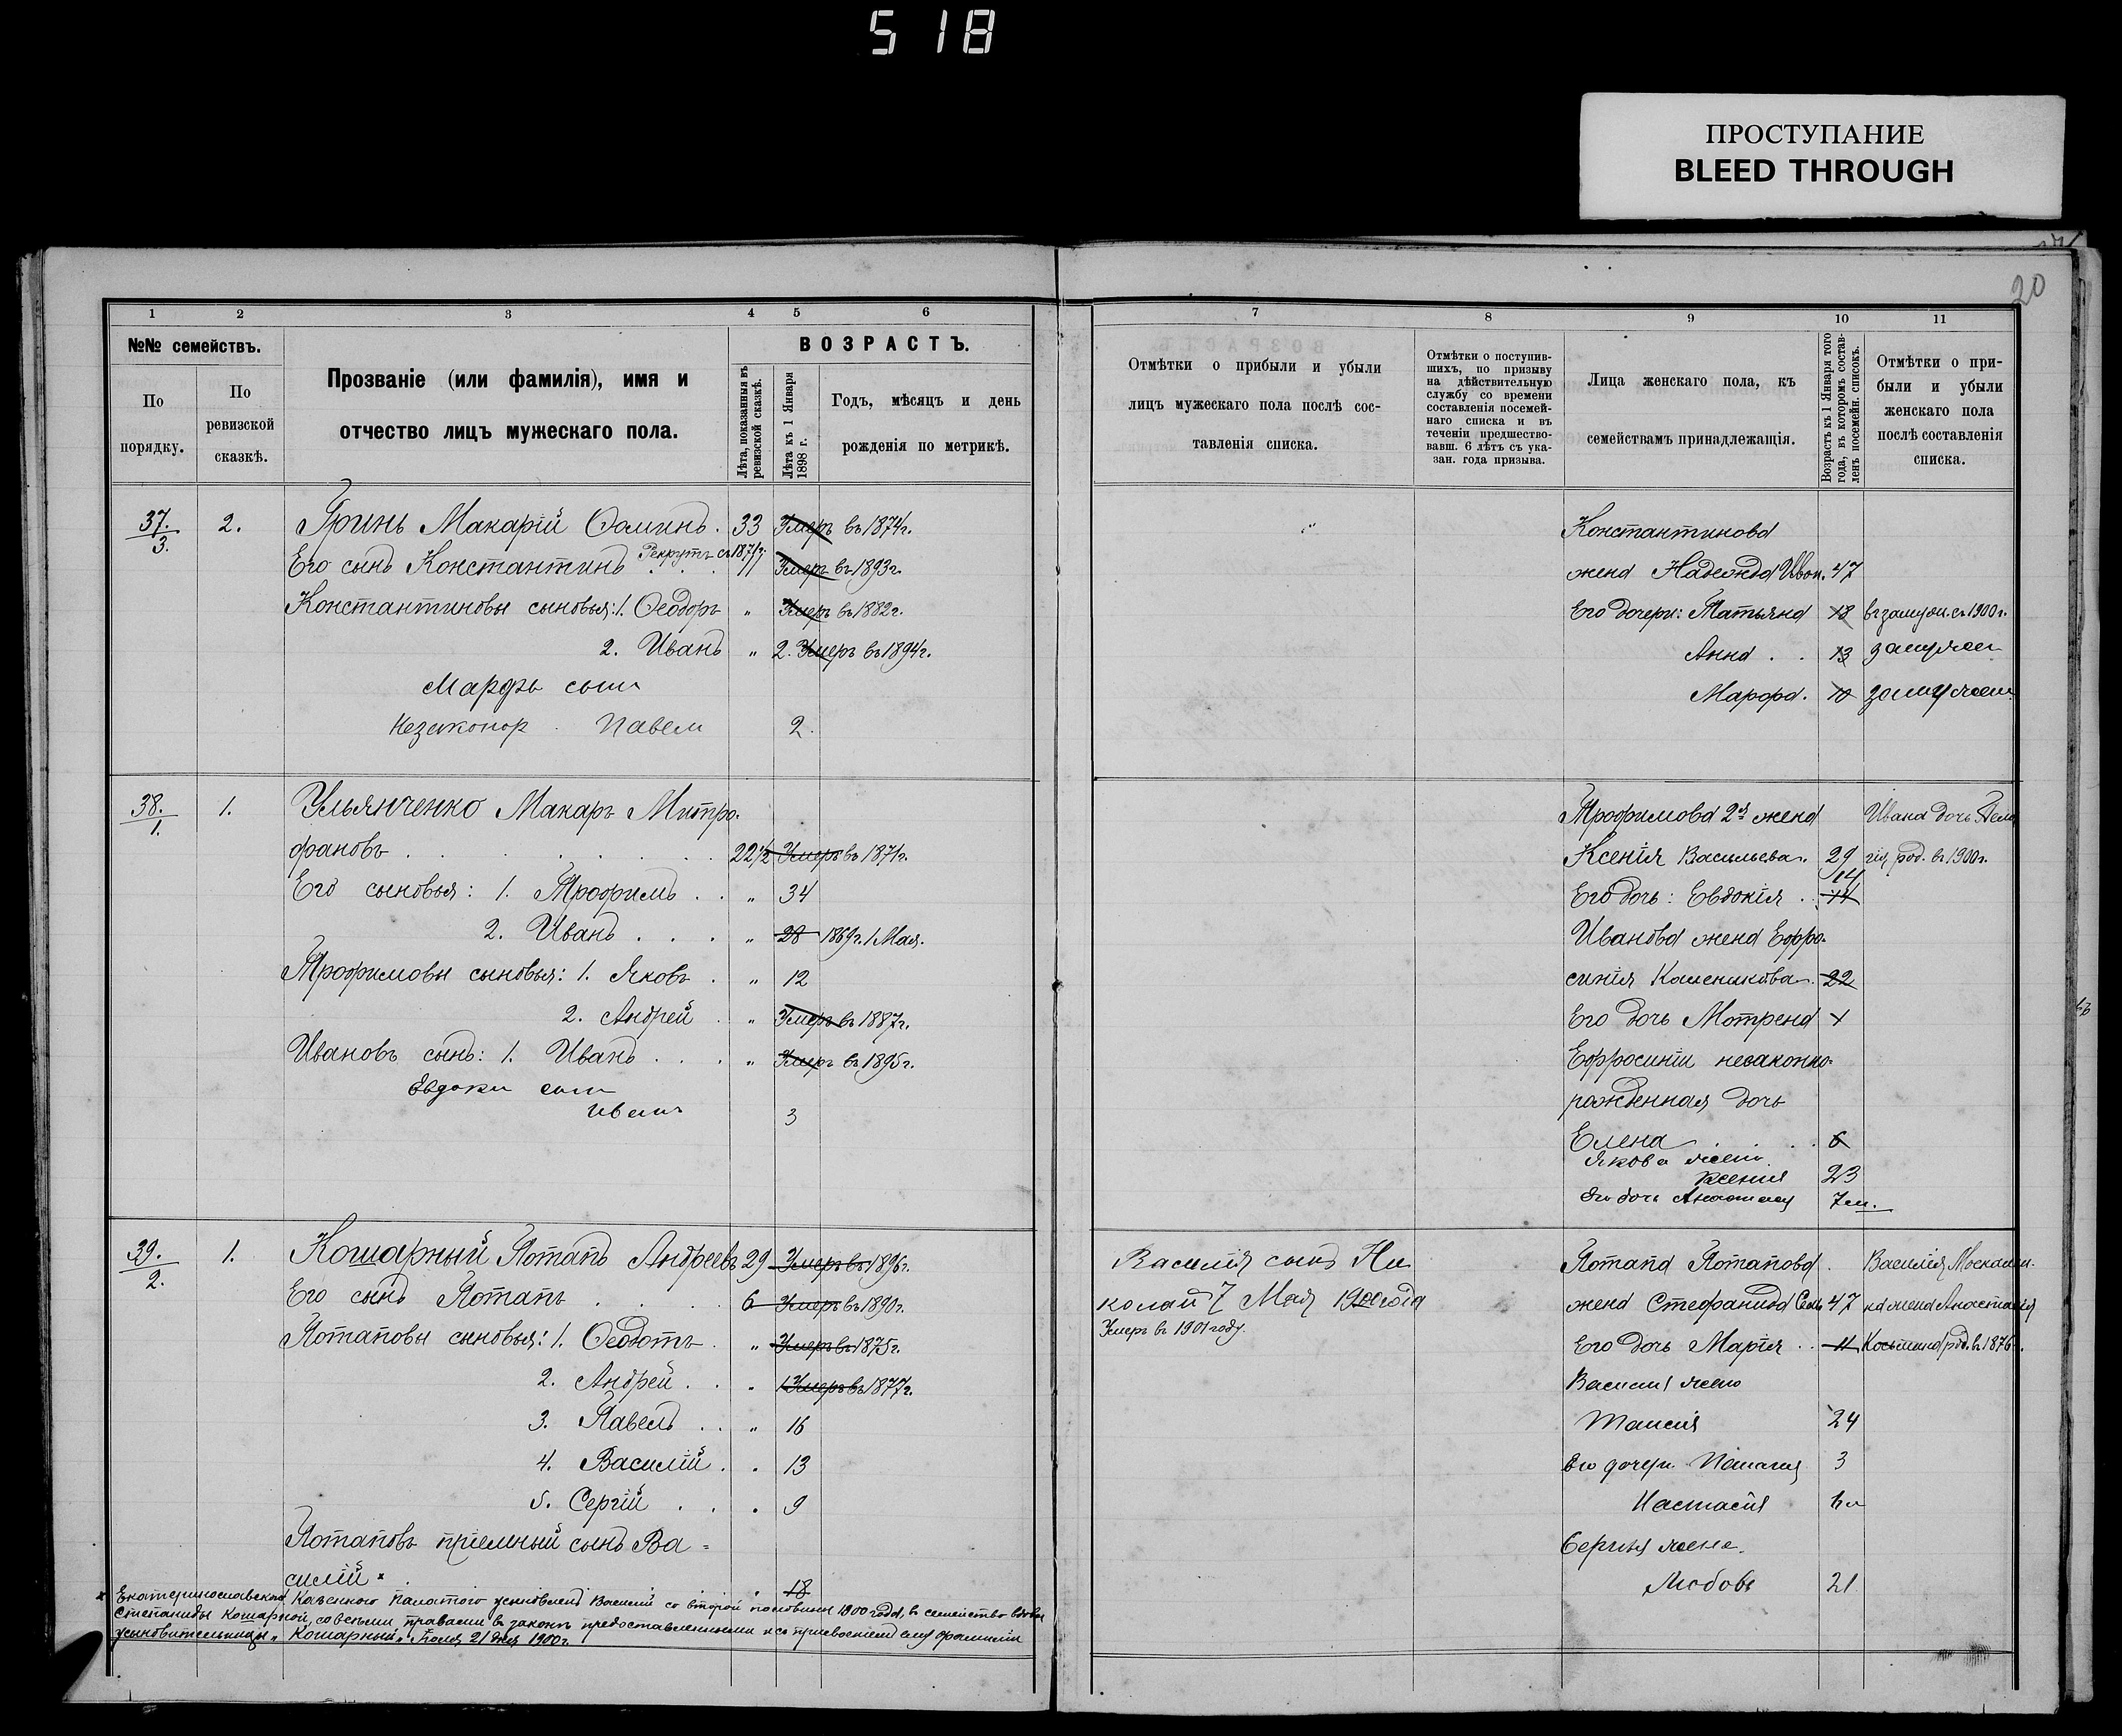 518
ПРОСТУПАНИЕ
BLEED THROUGH
20
1 2 3 4 5 6
№№ семействъ.
По порядку.
По ревизской сказкѣ.
Прозваніе (или фамилія), имя и
отчество лицъ мужескаго пола.
ВОЗРАСТЪ.
Лѣта, показанныя въ ревизской сказкѣ.
Лѣта къ 1 Января 1898 г.
Годъ, мѣсяцъ и день
рожденія по метрикѣ.
37./3. 2. Гринь Макарій Ѳоминъ. 33 Умеръ въ 1874г.
Его сынъ Константинъ Рекрутъ съ 1871г. 11 Умеръ въ 1893г.
Константиновы сыновья: 1. Ѳеодоръ " Умеръ въ 1882г.
2. Иванъ " 2. Умеръ въ 1894г.
Марфы сынъ
Незаконор. Павел 2.
38./1. 1. Ульянченко Макаръ Митро-
фановъ 22½ Умеръ въ 1871г.
Его сыновья: 1. Трофимъ " 34
2. Иванъ " 28 1869г. 1 Мая.
Трофимовы сыновья: 1. Яковъ " 12
2. Андрей " Умеръ въ 1887г.
Ивановъ сынъ: 1. Иванъ " Умеръ въ 1895г.
Евдоки сын
Иванъ 3
39./2. 1. Кошарный Потапъ Андреевъ 29 Умеръ въ 1896г.
Его сынъ Потапъ 6 Умеръ въ 1890г.
Потаповы сыновья: 1. Ѳеодотъ " Умеръ въ 1875г.
2. Андрей " Умеръ въ 1877г.
3. Павелъ " 16
4. Василій " 13
5. Сергій " 9
Потаповъ пріемный сынъ Ва-
силій × " 18
× Екатеринославскою Казенною Палатою усыновленъ Василій со второй половины 1900 года, въ семейство вдовы
Степаниды Кошарной, со всеми правами въ законѣ предоставленными и съ присвоеніемъ ему фамиліи
усыновительницы "Кошарный". 21 дня 1900г.
7 8 9 10 11
Отмѣтки о прибыли и убыли
лицъ мужескаго пола послѣ сос-
тавленія списка.
Отмѣтки о поступив-
шихъ, по призыву
на дѣйствительную
службу со времени
составленія посемей-
наго списка и въ
теченіи предшество-
вавш. 6 лѣтъ съ ука-
зан. года призыва.
Лица женскаго пола, къ
семействамъ принадлежащія.
Возрастъ къ 1 Января того
года, въ которомъ состав-
ленъ посемейн. списокъ.
Отмѣтки о при-
были и убыли
женскаго пола
послѣ составленія
списка.
Константинова
жена Надежда Иван. 47
Его дочери: Татьяна 18 въ замуж. съ 1900г.
Анна 13 замужем
Марфа. 10 замужем.
Трофимова 2я жена Ивана дочь Пела
Ксенія Васильева. 29 гія род. въ 1900г.
Его дочь: Евдокія 14
Иванова жена Ефро-
синія Калениκова 22
Его дочь Мотрена
Ефросиніи незаконно-
рожденная дочь
Елена 6
Якова жена
Ксения 23
Его дочь Анастасия 7м.
Василія сынъ Ни
колай 7 Мая 1900 года
Умеръ въ 1901 году.
Потапа Потапова Василія
жена Стефанида Сем. 47 на жена Анастасія
Его дочь Марія 11 Косьмина род. въ 1876.
Василия жена
Таисия 24
Его дочери Палагия 3
Настасія
Сергия жена
Любовь 21